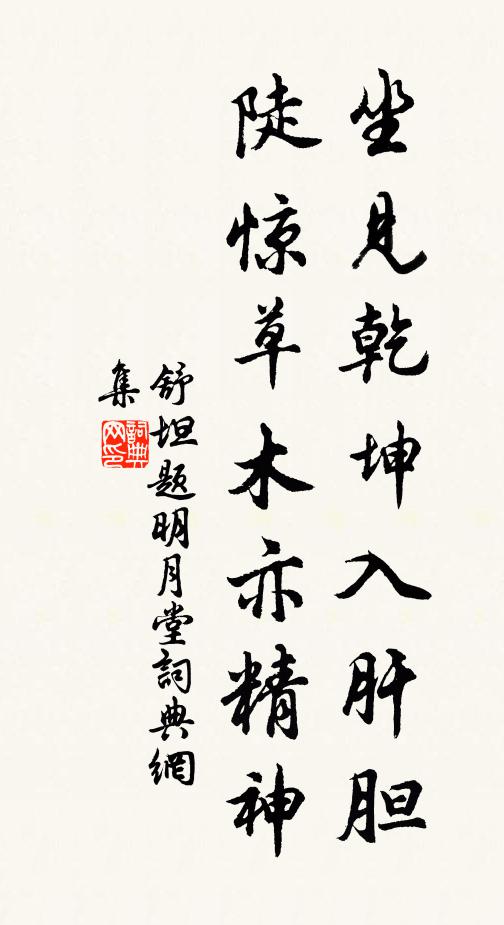 坐见乾坤入肝胆
陡惊草木亦精神
舒坦题明月堂詞典網
集
詞典
网印